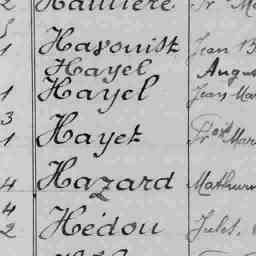 2 Hautière
5
1 Havouist Jean B
Hayel Augu
1 Hayel Jean Mar
3
1 Hayet Mar
4 Hazard Mathurin
4
2 Hédou Jules,